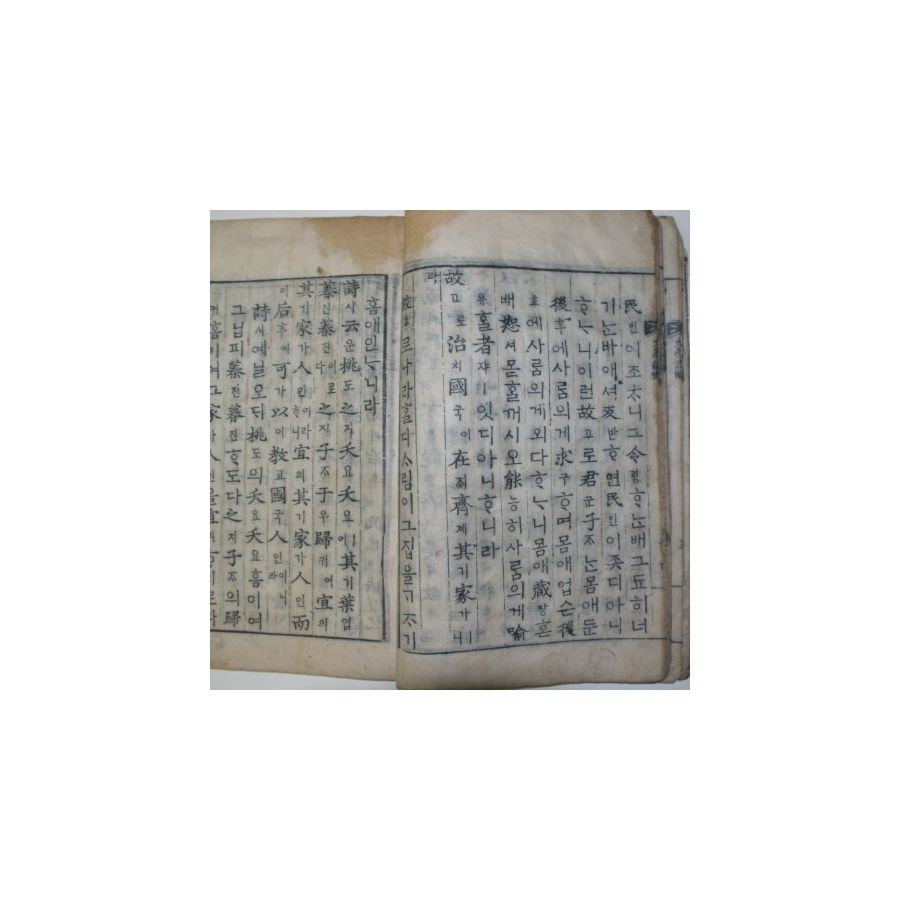 民민이조ᄎᆞ니그令령ᄒᆞᄂᆞᆫ배그됴히너
기ᄂᆞᆫ바애셔反반ᄒᆞ면民민이좃디아니
ᄒᆞᄂᆞ니이런故고로君군子ᄌᆞᄂᆞᆫ몸애둔
後후에사ᄅᆞᆷ의게求구ᄒᆞ며몸애업슨後
후에사ᄅᆞᆷ의게외다ᄒᆞᄂᆞ니몸애藏장ᄒᆞᆫ
배恕셔몯ᄒᆞᆯ꺼시오能능히사ᄅᆞᆷ의게喩
유ᄒᆞᆯ者쟈ㅣ잇디아니ᄒᆞ니라
故고로治치國국이在ᄌᆡ齊졔其기家가ㅣ니라
故고로나라ᄒᆞᆯ다ᄉᆞ림이그집을ᄀᆞᄌᆞ기
홈애인ᄂᆞ니라
詩시云운桃도之지夭요夭요ㅣ여其기葉엽
蓁진蓁진이로다之지子ᄌᆞ于우歸귀여宜의
其기家가人인이라ᄒᆞ니宜의其기家가人인而
이后후에可가以이敎교國국人인이니라
詩시예닐오ᄃᆡ桃도의夭요夭요홈이여
그닙피蓁진蓁진ᄒᆞ도다之지子ᄌᆞ의歸
귀홈이여그家가人인을宜의